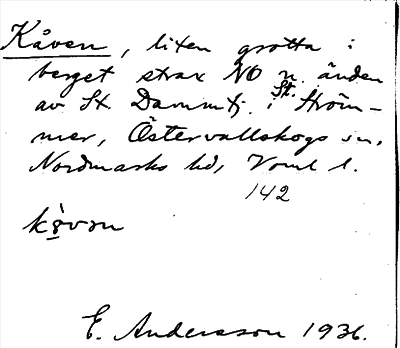 Kåven, liten grotta i
berget strax NO n. änden
av St. Dammtj. i St. Ström-
mer, Östervallskogs sn,
Nordmarks hd, Vrml l.
142
kò̤vən
E. Andersson 1936.